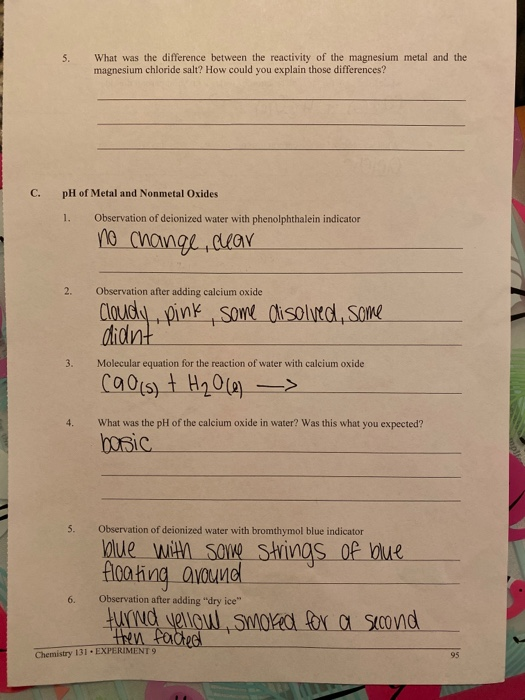 5. What was the difference between the reactivity of the magnesium metal and the
magnesium chloride salt? How could you explain those differences?
C. pH of Metal and Nonmetal Oxides
1. Observation of deionized water with phenolphthalein indicator
no change, clear
2. Observation after adding calcium oxide
cloudy, pink, some disolved, some
didnt
3. Molecular equation for the reaction of water with calcium oxide
CaO(s) + H₂O(l) —>
4. What was the pH of the calcium oxide in water? Was this what you expected?
basic
5. Observation of deionized water with bromthymol blue indicator
blue with some strings of blue
floating around
6. Observation after adding "dry ice"
turned yellow, smoked for a second
then faded
Chemistry 131 • EXPERIMENT 9 95